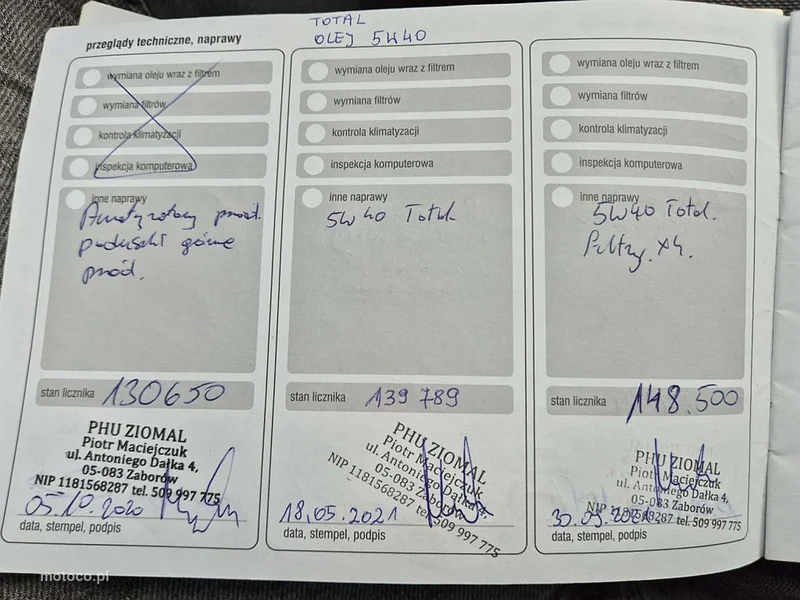 przeglądy techniczne, naprawy
TOTAL
OLEJ 5W40
wymiana oleju wraz z filtrem
wymiana filtrów
kontrola klimatyzacji
inspekcja komputerowa
inne naprawy
Amortyzatory przód.
poduszki górne
przód.
stan licznika 130650
PHU ZIOMAL
Piotr Maciejczuk
ul. Antoniego Dałka 4,
05-083 Zaborów
NIP 1181568287 tel. 509 997 775
05.10.2020
data, stempel, podpis
wymiana oleju wraz z filtrem
wymiana filtrów
kontrola klimatyzacji
inspekcja komputerowa
inne naprawy
5W40 Total
stan licznika 139 789
PHU ZIOMAL
Piotr Maciejczuk
ul. Antoniego Dałka 4,
05-083 Zaborów
NIP 1181568287 tel. 509 997 775
18.05.2021
data, stempel, podpis
wymiana oleju wraz z filtrem
wymiana filtrów
kontrola klimatyzacji
inspekcja komputerowa
inne naprawy
5W40 Total.
Filtry. x4.
stan licznika 148.500
PHU ZIOMAL
Piotr Maciejczuk
ul. Antoniego Dałka 4,
05-083 Zaborów
NIP 1181568287 tel. 509 997 775
data, stempel, podpis
motoco.pl